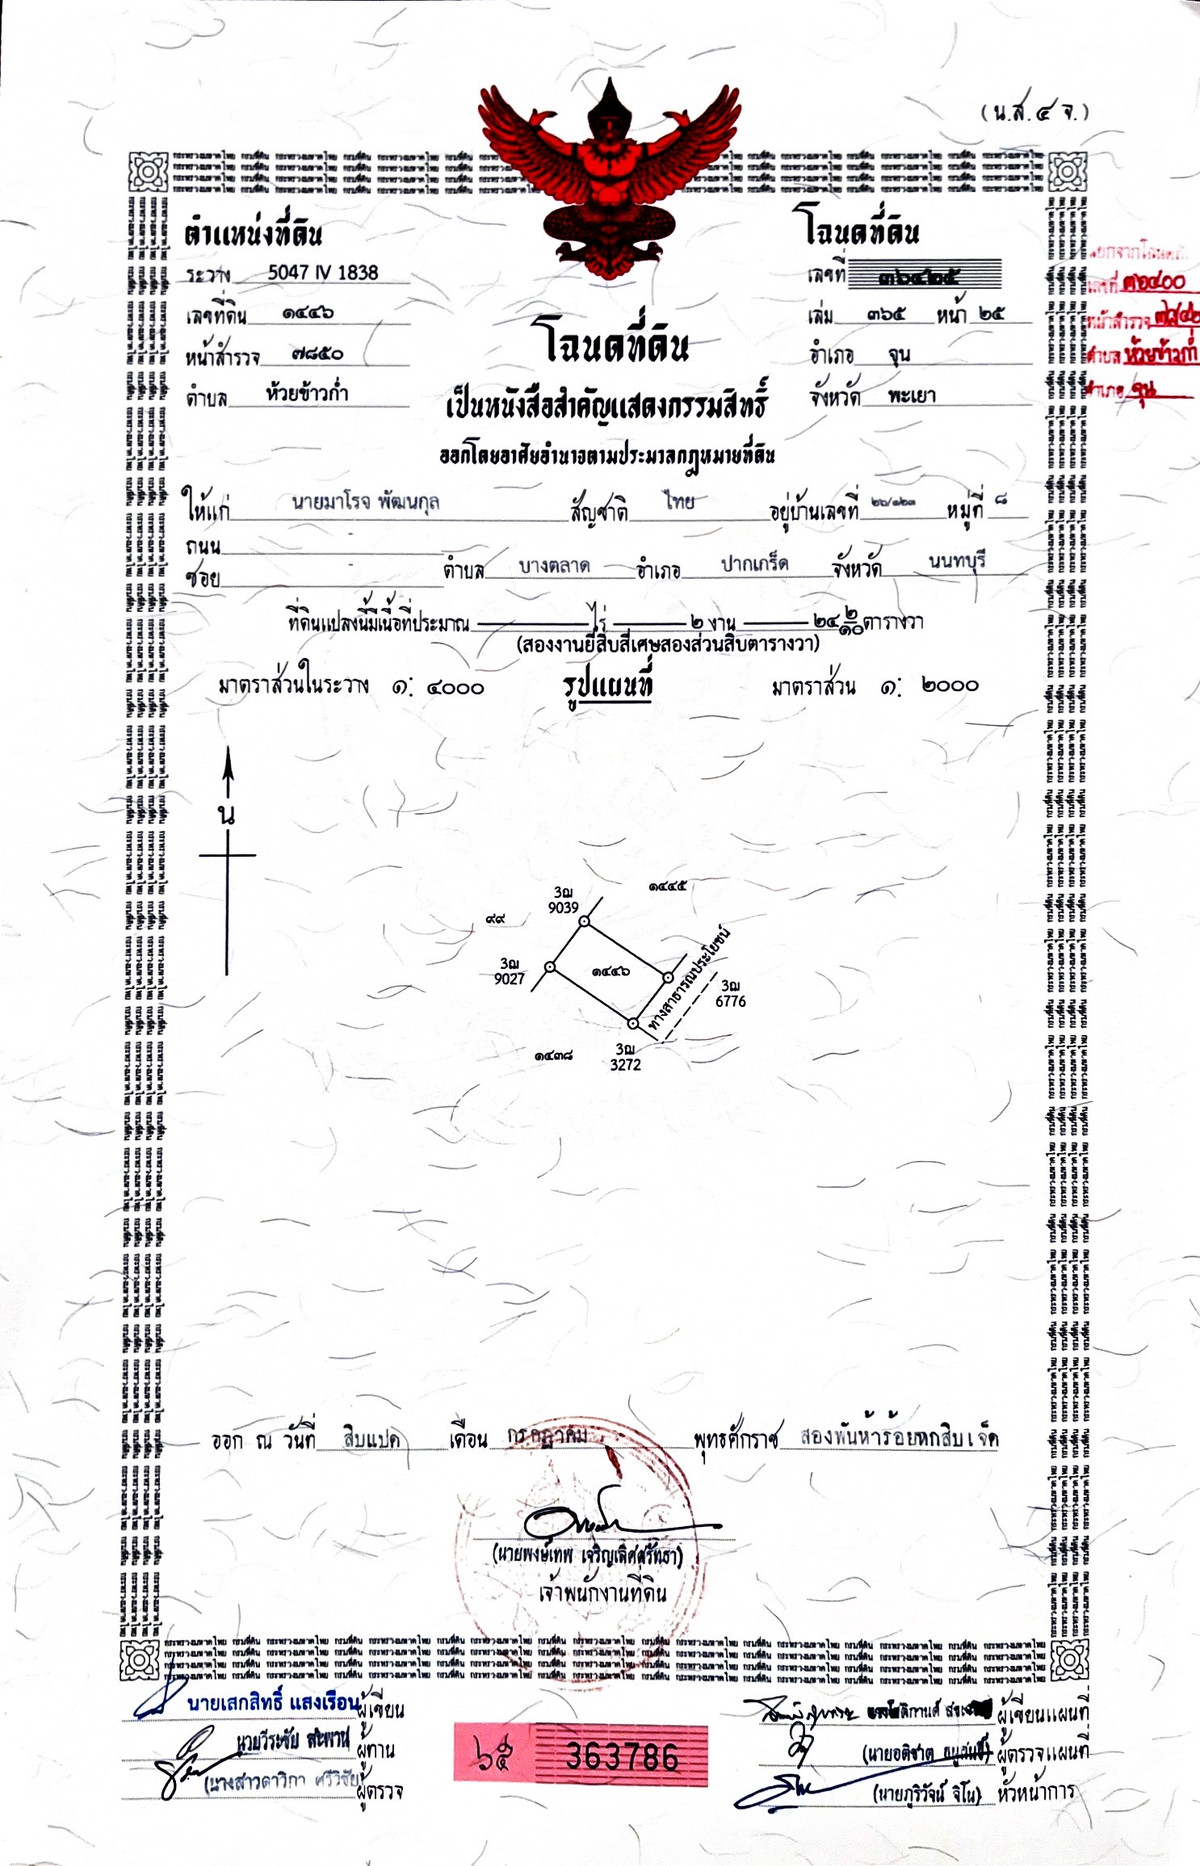 (น.ส.๔ จ.)
ตำแหน่งที่ดิน
ระวาง 5047 IV 1838
เลขที่ดิน ๑๔๔๖
หน้าสำรวจ ๗๘๕๐
ตำบล ห้วยข้าวก่ำ
โฉนดที่ดิน
เลขที่ ๓๖๔๒๕
เล่ม ๓๖๕ หน้า ๒๕
อำเภอ จุน
จังหวัด พะเยา
เลขที่ ๓๒๔๐๐
หน้าสำรวจ
ตำบล ห้วยข้าวก่ำ
อำเภอ จุน
โฉนดที่ดิน
เป็นหนังสือสำคัญแสดงกรรมสิทธิ์
ออกโดยอาศัยอำนาจตามประมวลกฎหมายที่ดิน
ให้แก่ นายมาโรจ พัฒนกุล สัญชาติ ไทย อยู่บ้านเลขที่ ๒๖/๑๒๓ หมู่ที่ ๘
ถนน -
ซอย - ตำบล บางตลาด อำเภอ ปากเกร็ด จังหวัด นนทบุรี
ที่ดินแปลงนี้มีเนื้อที่ประมาณ ไร่ ๒ งาน ๒๔ ๒/๑๐ ตารางวา
(สองงานยี่สิบสี่เศษสองส่วนสิบตารางวา)
มาตราส่วนในระวาง ๑: ๔๐๐๐ รูปแผนที่ มาตราส่วน ๑: ๒๐๐๐
น
๑๔๔๕
3ฌ
9039
๙๙
3ฌ
9027
๑๔๔๖
ทางสาธารณประโยชน์
3ฌ
6776
3ฌ
3272
๑๔๓๘
ออก ณ วันที่ สิบแปด เดือน กรกฎาคม พุทธศักราช สองพันห้าร้อยหกสิบเจ็ด
(นายพงษ์เทพ เจริญเลิศศรัทธา)
เจ้าพนักงานที่ดิน
นายเสกสิทธิ์ แสงเรือน ผู้เขียน
นายวีระชัย สะพาน ผู้ทาน
(นางสาวดาวิกา ศรีวิชัย) ผู้ตรวจ
๖๕ 363786
ผู้เขียนแผนที่
ผู้ตรวจแผนที่
(นายภูริวัจน์ จิโน) หัวหน้าการ